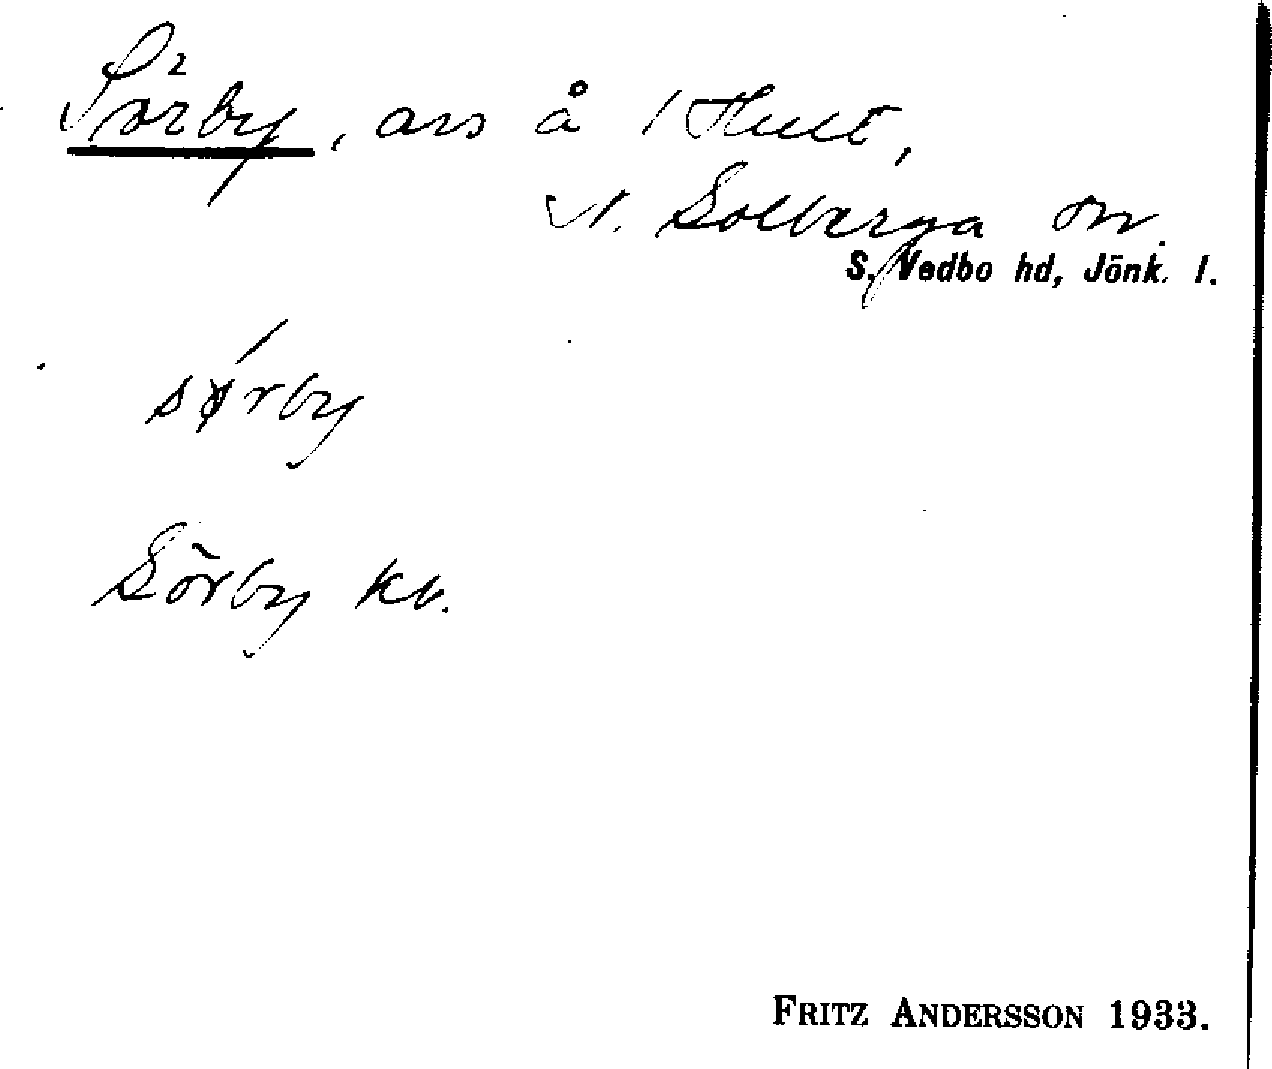 Sörby, avs å 1 Hult,
N. Solberga sn.
S. Vedbo hd, Jönk. l.
sørby
Sörby kb.
FRITZ ANDERSSON 1933.